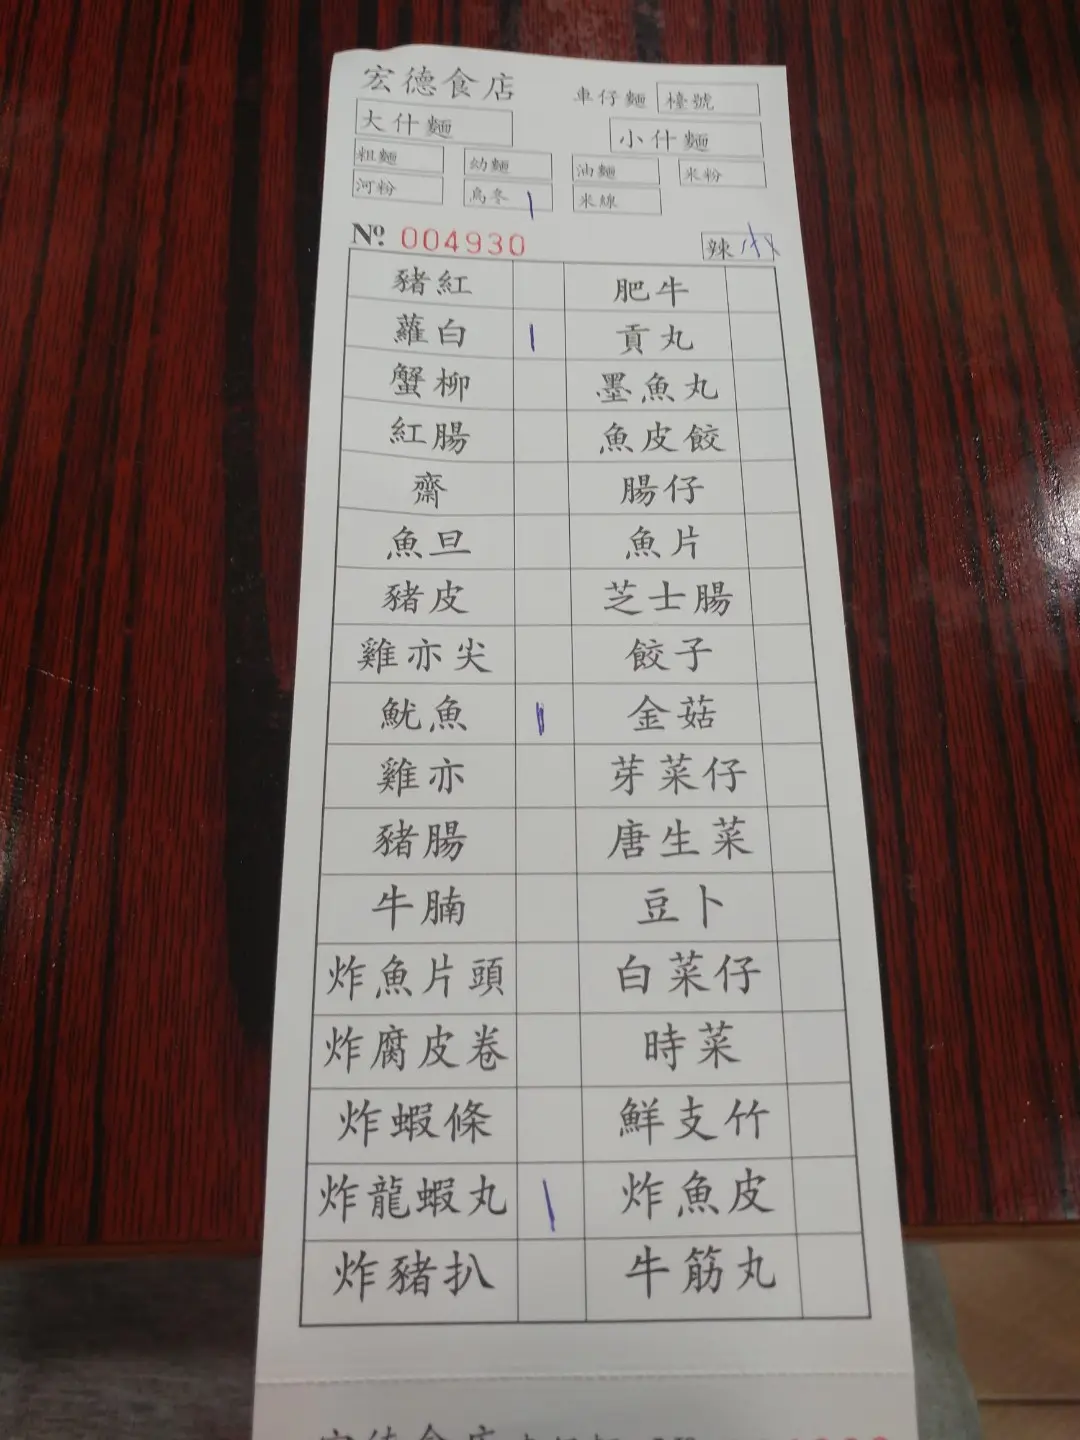 宏德食店 車仔麵 檯號
大什麵 小什麵
粗麵 幼麵 油麵 米粉
河粉 烏冬 | 米線
Nº 004930 辣 小
豬紅 肥牛
蘿白 | 貢丸
蟹柳 墨魚丸
紅腸 魚皮餃
齋 腸仔
魚旦 魚片
豬皮 芝士腸
雞亦尖 餃子
魷魚 | 金菇
雞亦 芽菜仔
豬腸 唐生菜
牛腩 豆卜
炸魚片頭 白菜仔
炸腐皮卷 時菜
炸蝦條 鮮支竹
炸龍蝦丸 | 炸魚皮
炸豬扒 牛筋丸
宏德食店